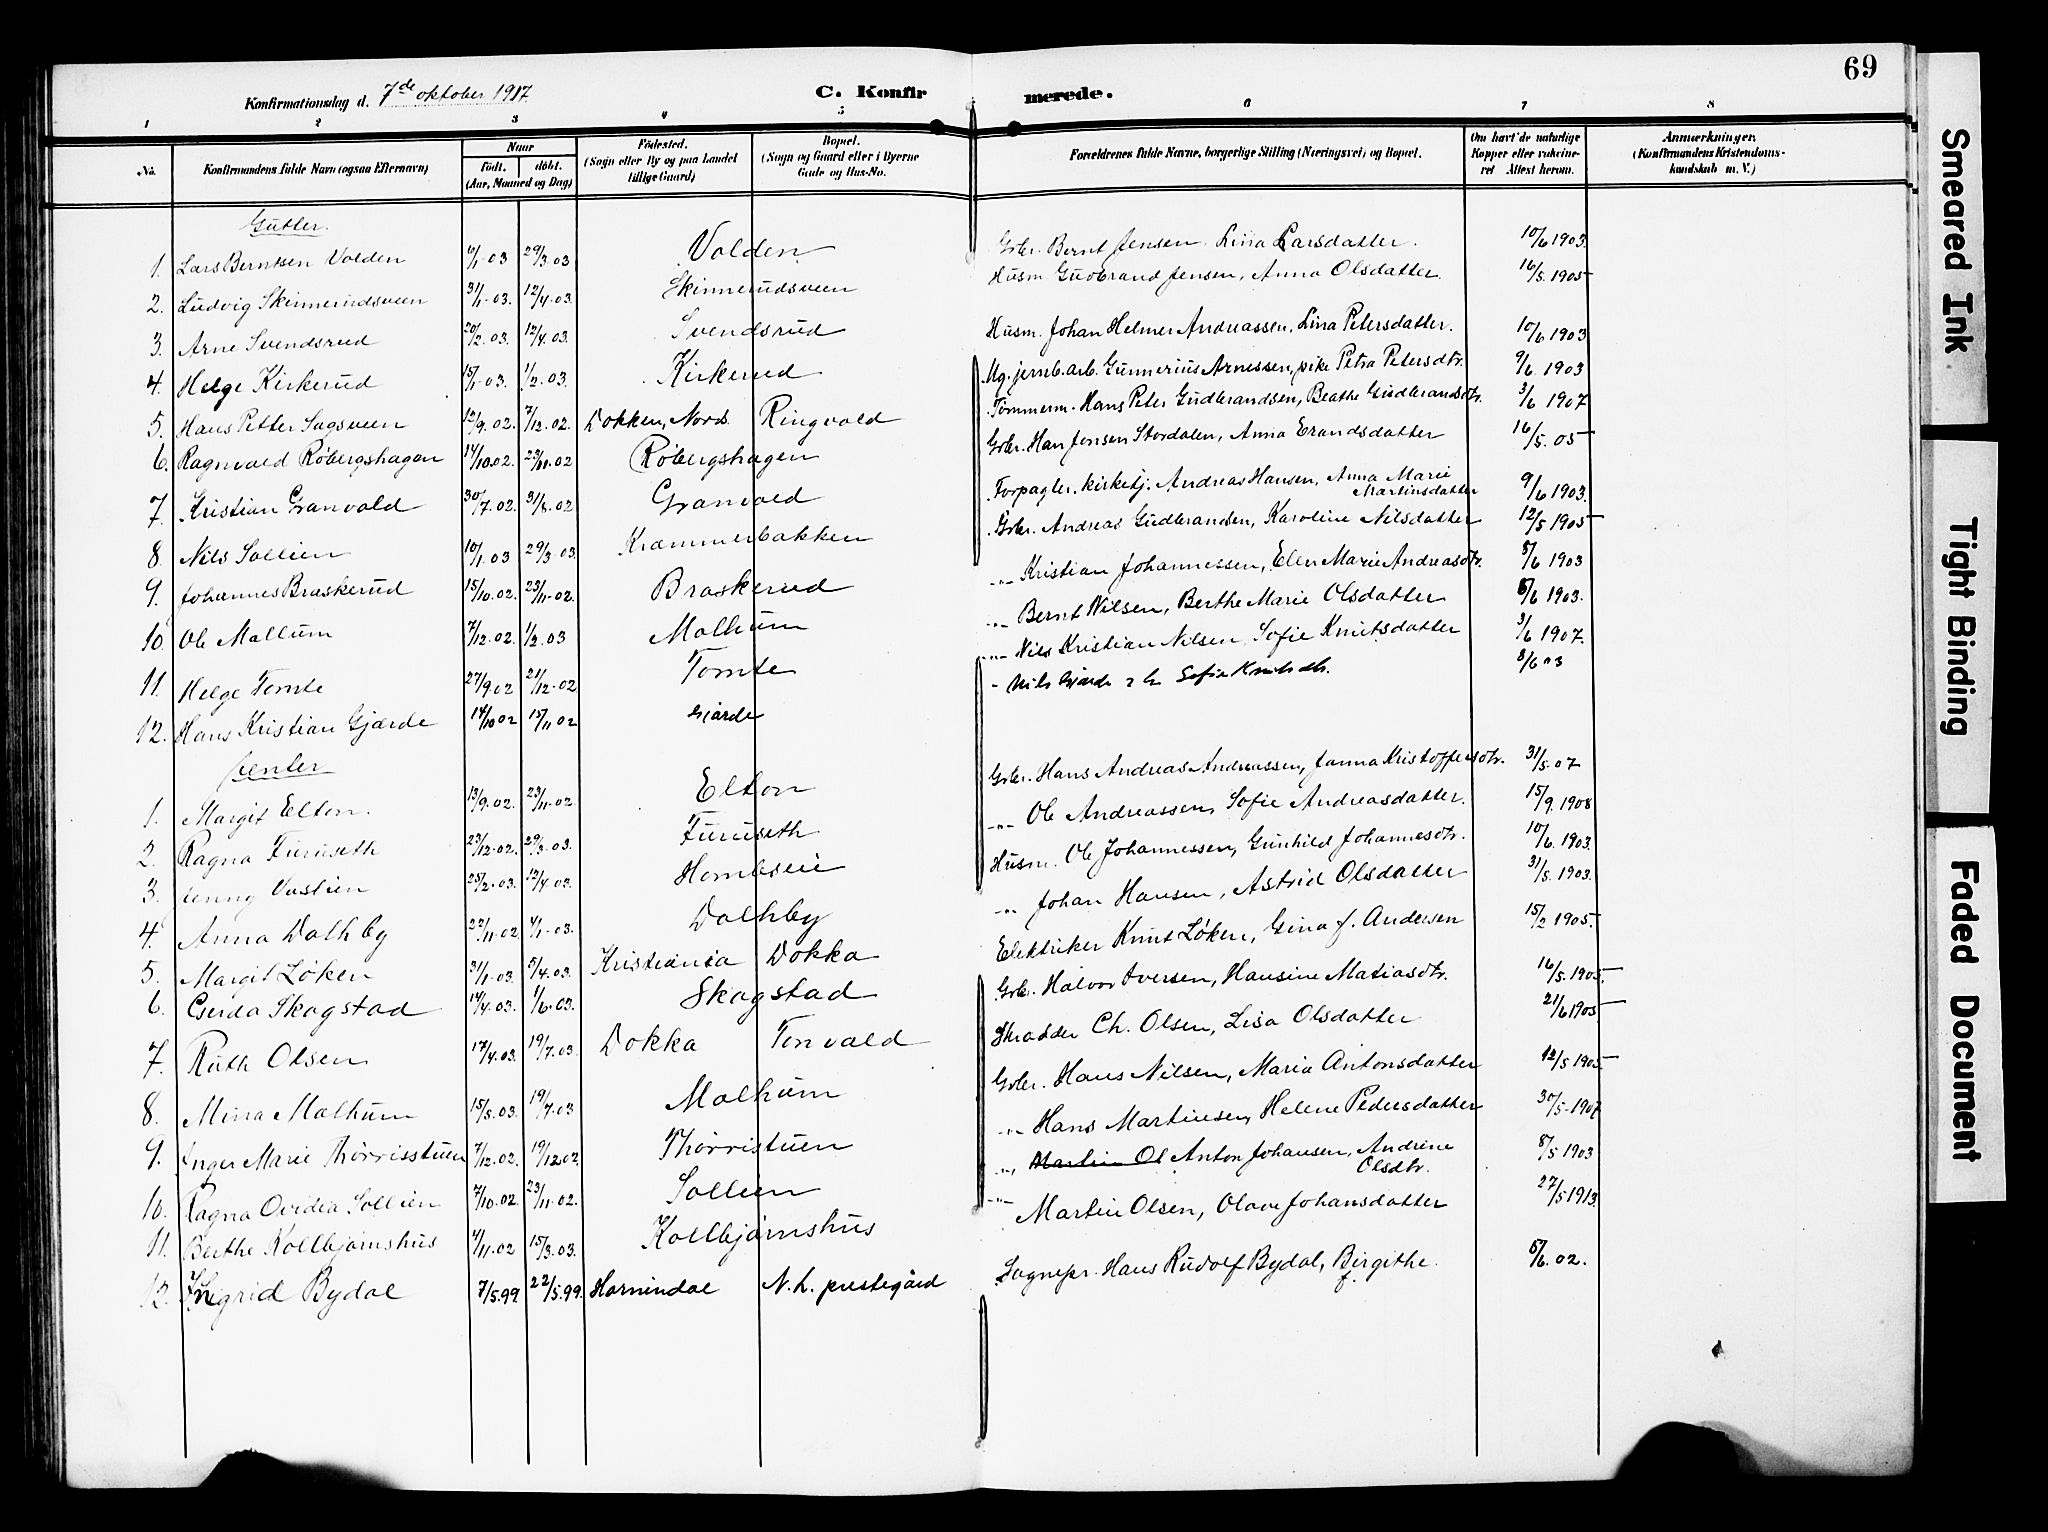 69
Konfirmationsdag d. 7de oktober 1917
C. Konfirmerede.
1 2 3 4 5 6 7 8
No. Konfirmandens fulde Navn (ogsaa Efternavn) Naar født. døbt. (Aar, Maaned og Dag) Fødested. (Sogn eller By og paa Landet tillige Gaard) Bopæl. (Sogn og Gaard eller i Byerne Gade og Hus-No. Forældrenes fulde Navne, borgerlige Stilling (Næringsvei) og Bopæl. Om havt de naturlige Kopper eller vakcineret Attest herom. Anmærkninger. (Konfirmandens Kristendomskundskab m. V.)
Gutter.
1. Lars Berntsen Volden 6/1-03 29/3.03 Volden Gbr. Bernt Jensen. Lina Larsdatter. 10/6 1903.
2. Ludvig Skinnerudsveen 31/1-03. 12/4-03. Skinnerudsveen Husm Gudbrand Jensen, Anna Olsdatter. 16/5.1905
3. Arne Svendsrud 20/2.03. 12/4.03. Svendsrud Husm. Johan Helmer Andreassen, Lina Petersdatter. 10/6 1903
4. Helge Kirkerud 15/1-03. 1/2.03. Kirkerud Ug. jernb.arb. Gunnerius Arnessen, pike Petra Petersdtr. 9/6. 1903
5. Hans Petter Sagsveen 12/9.02. 7/12.02. Dokken, Nord. Ringvold Tømmerm. Hans Peter Gudbrandsen, Beathe Gudbrandsdtr. 3/6 1907
6. Ragnvald Røbergshagen 14/10.02. 23/11.02 Røbergshagen Gbr. Han Jensen Stordalen, Anna Erandsdatter 16/5.05
7. Kristian Granvold 30/7.02. 31/8.02 Granvold Forpagter, kirketj. Andreas Hansen, Anna Marie Martinsdatter 9/6 1903.
8. Nils Sollien 10/1.03 29/3.03. Kræmmerbakken Gbr. Andreas Gudbrandsen, Karoline Nilsdatter 12/5 1905
9. Johannes Braskerud 15/10.02. 23/11-02. Braskerud -"- Kristian Johannessen, Elen Marie Andreasdtr. 5/6 1903
10. Ole Malhum 7/12.02. 1/2.03 Malhum -"- Bernt Nilsen, Berthe Marie Olsdatter 5/6 1903.
11. Helge Tomte 27/9.02 21/12-02 Tomte -"- Nils Kristian Nilsen Sofie Knutsdatter 3/6 1907.
12. Hans Kristian Gjærde 14/10 02 15/11 02 Gjærde - Nils Gjærde Sofie Knutsdtr. 8/6 03
Jenter
1. Margit Elton. 13/9.02. 23/11-02. Elton Gbr. Hans Andreas Andreassen, Janna Kristoffersdtr. 31/5.07
2. Ragna Furuseth 23/12-02. 29/3.03. Furuseth -"- Ole Andreassen, Sofie Andreasdatter. 15/9.1908
3. Jenny Vastien 25/2-03. 12/4.03. Hombseie Husm. Ole Johannessen, Gunhild Johannesdtr. 10/6.1903.
4. Anna Dalhby 22/11-02. 4/1-03. Dalhby -"- Johan Hansen, Astrid Olsdatter 31/5.1903.
5. Margit Løken 31/1-03. 5/4.03. Kristiania Dokka Elektriker Knut Løken, Gina f. Andersen 15/2 1905.
6. Gerda Skogstad 14/4.03. 1/6.03. Skogstad Gbr. Halvor Iversen, Hansine Matiasdtr. 16/5.1905.
7. Ruth Olsen 17/4.03. 19/7.03. Dokka Tonvold Skrædder Ch. Olsen, Lisa Olsdatter 21/6 1905
8. Mina Malhum 15/5.03. 19/7.03 Malhum Gbr. Hans Nilsen, Maria Antonsdatter 12/5 1905
9. Inger Marie Thørrisstuen 7/12.02. 19/12.02. Thørristuen -"- Hans Martinsen, Helene Pedersdatter 30/5-1907
10. Ragna Ovidia Sollien 7/10.02. 23/11-02. Sollien -"- Martin Ol Anton Johansen, Andrine Olsdtr. 8/5 1903
11. Berthe Kolbjørnshus 4/11.02 15/3.03. Kolbjørnshus -"- Martin Olsen, Olava Johansdatter 27/5 1913.
12. Ingrid Bydal 7/5.99. 22/5.99. Hornindal N. L. prestegård Sognepr. Hans Rudolf Bydal, Birgithe f. 5/6.02.
Smeared Ink
Tight Binding
Faded Document